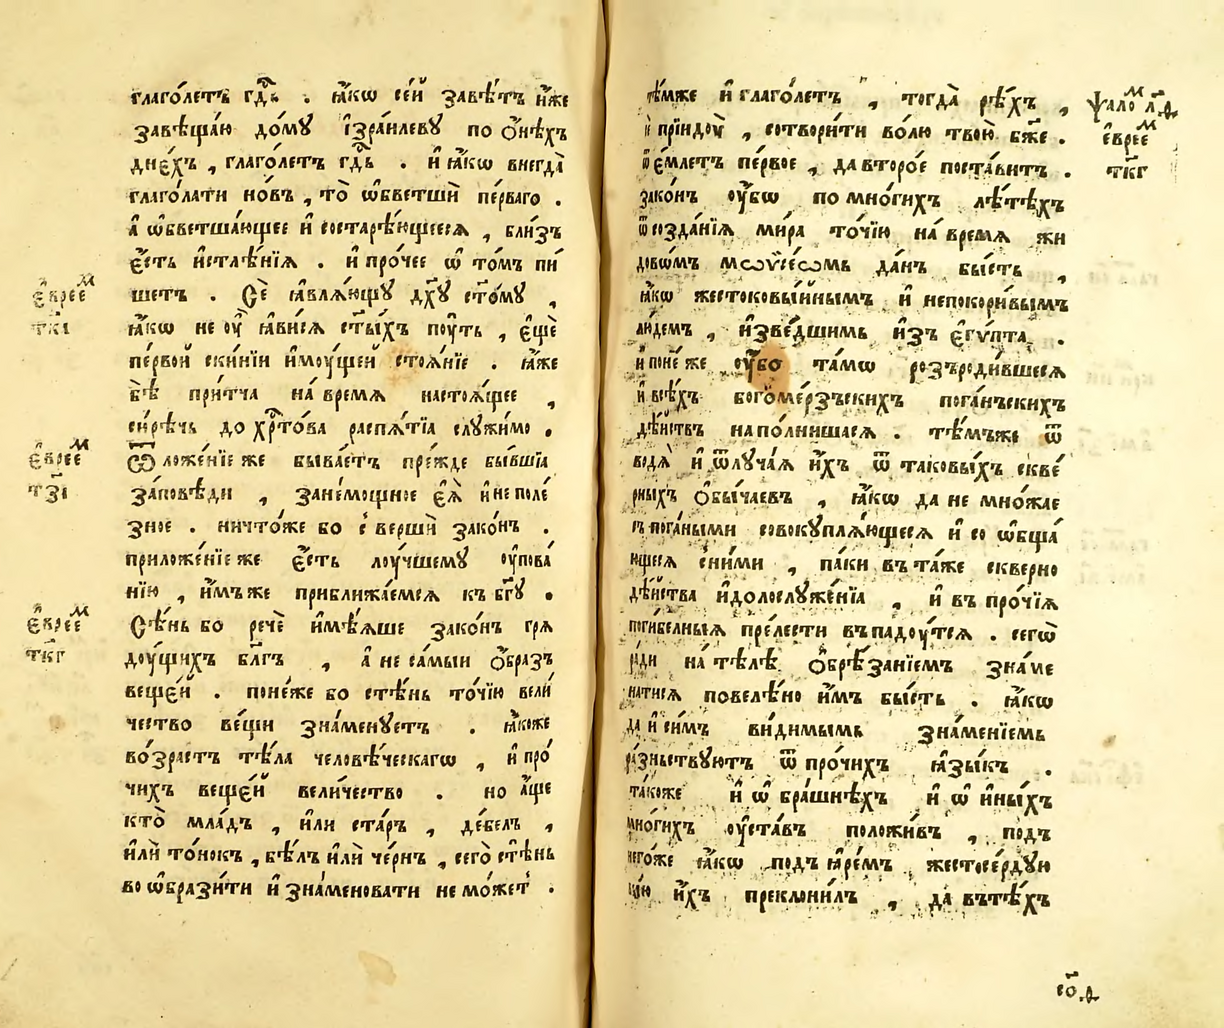 глаго́летъ гдⷭ҇ь . ꙗ҆́кѡ се́й завѣ́тъ и҆́же
завѣща́ю до́мꙋ і҆зра́илевꙋ по ѻ҆́нѣхъ
дне́хъ , глаго́летъ гдⷭ҇ь . и҆ ꙗ҆́кѡ внегда̀
глаго́лати но́въ , то̀ ѡ҆бветшѝ пе́рваго .
а҆ ѡ҆бветша́ющее и҆ состарѣ́ющееся , бли́зъ
є҆́сть и҆стлѣ́нїѧ . и҆ про́чее ѡ҆ то́мъ пи́
шетъ . Се́ ꙗ҆влѧ́ющꙋ дх҃ꙋ ст҃о́мꙋ ,
є҆вре́еⷨ
ꙗ҆́кѡ не оу҆̀ ꙗ҆ви́сѧ ст҃ы́хъ поу́ть , є҆щѐ
т҃к҃і
пе́рвой ски́нїи и҆моу́щей стоѧ́нїе . ꙗ҆́же
бѣ̀ при́тча на́ времѧ настоѧ́щее ,
си́рѣчь до хрⷭ҇то́ва распѧ́тїа слꙋжи́мо .
є҆вре́еⷨ
Ѿложе́нїе же быва́етъ пре́жде бы́вшїа
т҃з҃і
за́повѣди , зане́мощное є҆ѧ̀ и҆ не поле́
зное . ничто́же бо с̾верши́ зако́нъ .
приложе́нїе же є҆́сть лоу́чшемꙋ оу҆пова́
нїю , и҆́мъ же приближа́емсѧ къ бг҃ꙋ .
є҆вре́еⷨ
Сѣ́нь бо речѐ и҆мѣ́ѧше зако́нъ грѧ
т҃к҃г
доу́щихъ бл҃гъ , а҆ не са́мыи ѻ҆́бразъ
веще́й . поне́же бо стѣ́нь то́чїю вели́
чество ве́щи зна́менꙋетъ . ꙗ҆́коже
во́зрастъ тѣ́ла человѣ́ческагѡ , и҆ про́
чихъ веще́й вели́чество . но а҆́ще
кто̀ мла́дъ , и҆́ли ста́ръ , де́белъ ,
и҆лѝ то́нокъ , бѣ́лъ и҆лѝ че́рнъ , сего̀ стѣ́нь
во ѡ҆брази́ти и҆ зна́меновати не мо́жетъ .
тѣ́мже и҆ глаго́летъ , тогда̀ рѣ́хъ ,
ѱало́ⷨ л҃ѳ
сѐ прїидоу̀ , сотвори́ти во́лю твою̀ бж҃е .
є҆вре́еⷨ
ѿе́млетъ пе́рвое , да второ́е поста́витъ .
т҃к҃г
зако́нъ оу҆́бѡ по мно́гихъ лѣ́тѣхъ
ѿ созда́нїѧ ми́ра то́чїю на́ времѧ жи
довѡ́мъ мѡѷсе́ѡмь да́нъ бы́сть ,
ꙗ҆́кѡ жестоковы́йнымъ и҆ непокори́вымъ
лю́демъ , и҆зве́дшимъ и҆зъ є҆гѵ́пта .
и҆ поне́же оу҆́бо та́мѡ розъроди́вшеесѧ
и҆ всѣ́хъ богоме́рзъскихъ пога́нъскихъ
дѣ́йствъ напо́лнишасѧ . тѣ́мъже ѿ
водѧ̀ и҆ ѿлуча́ѧ и҆́хъ ѿ таковы́хъ скве́
рныхъ ѻ҆бы́чаевъ , ꙗ҆́кѡ да не мно́жае
съ пога́ными совокꙋплѧ́ющеесѧ и҆ со ѡ҆бща́
ющесѧ сни́ми , па́ки въ та́же скве́рно
дѣ́йства и҆долослꙋже́нїѧ , и҆ въ про́чїѧ
поги́бельныѧ пре́лести въпадоу́тсѧ . сегѡ̀
ра́ди на́ тѣлѣ ѻ҆брѣ́занїемъ зна́ме
натисѧ повелѣ́но и҆̀мъ бы́сть . ꙗ҆́кѡ
да и҆ си́мъ ви́димымь зна́менїемь
ра́зньствꙋютъ ѿ про́чихъ ꙗ҆зы́къ .
та́коже и҆ ѡ҆ бра́шнѣхъ и҆ ѡ҆ и҆ны́хъ
мно́гихъ оу҆ста́въ положи́въ , по́дъ
него́же ꙗ҆́кѡ подъ ꙗ҆ре́мъ жестосе́рдꙋю
и҆́хъ преклони́лъ , да̀ въ тѣ́хъ
со҃.ѳ